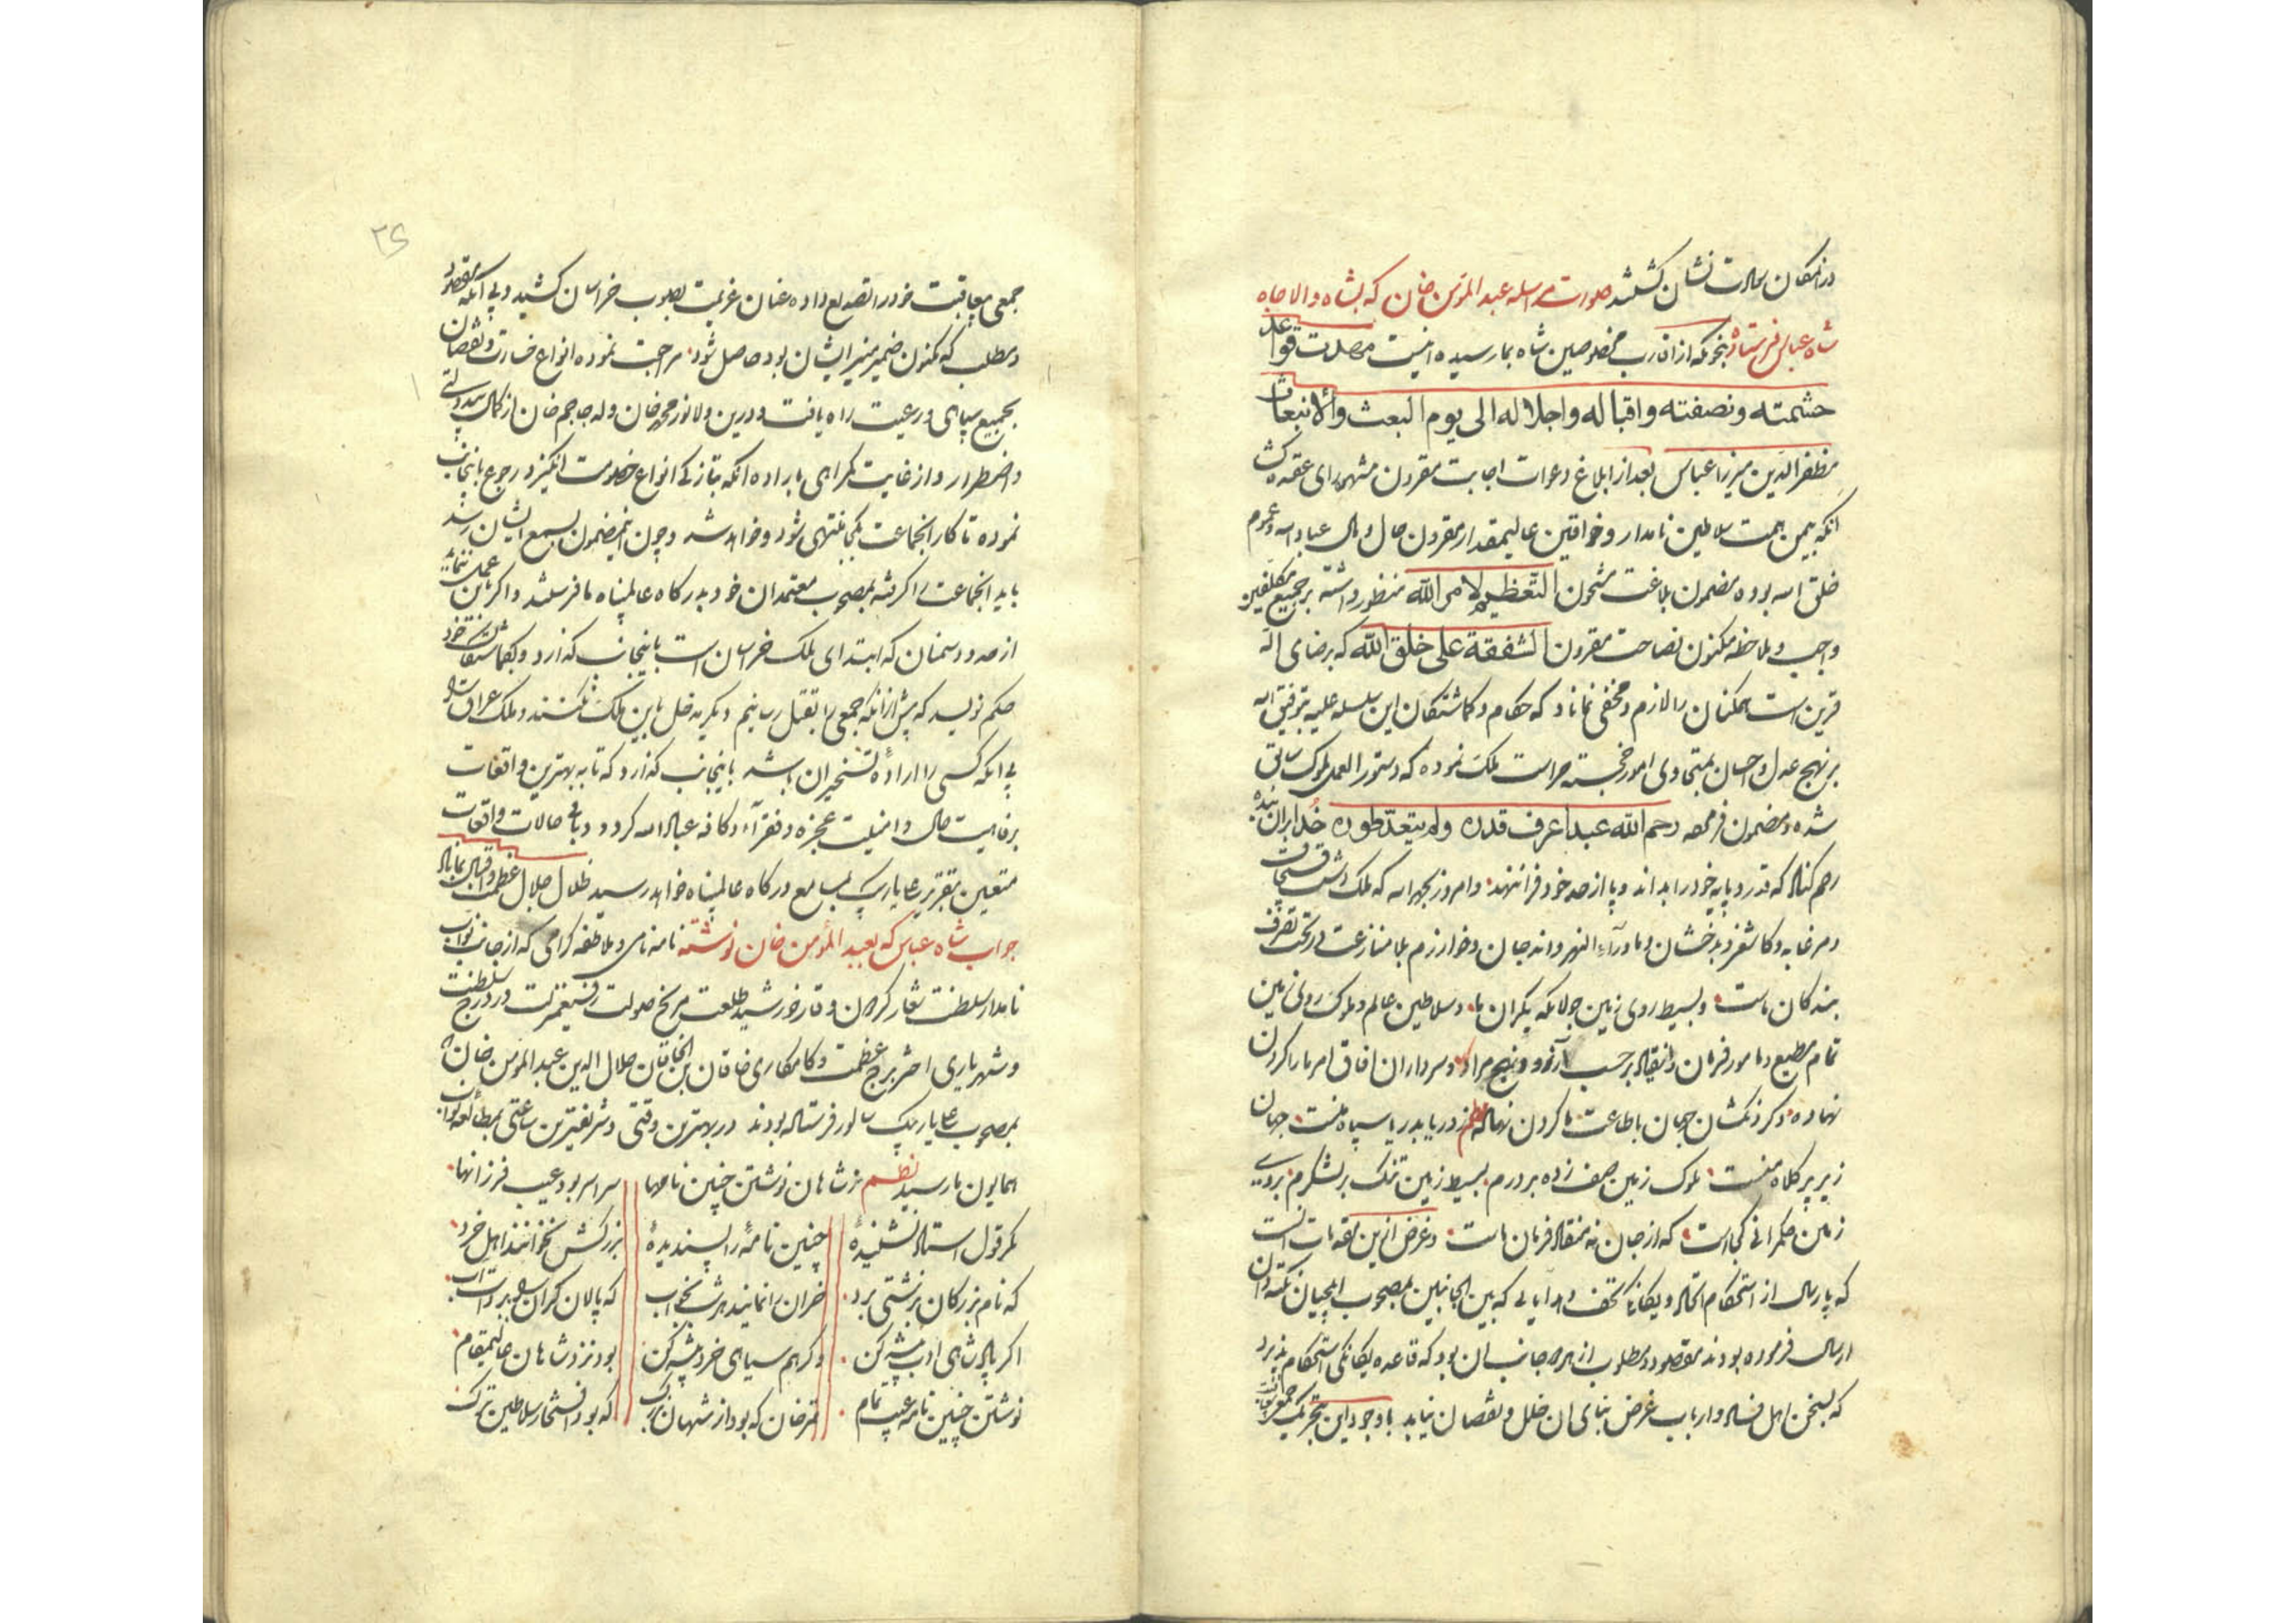 در امکان سالات نشان کشیدند صورت مراسله عبد المؤمن خان که بشاه والا جاه
شاه عباس فرستاده بنحویکه از اقارب مخلوصین شاه بما رسیده اینست مهدت قواعد
حشمته ونصفته واقباله واجلاله الی یوم البعث والانبعاث
مظفر الدین میرزا عباس بعد از ابلاغ دعوات اجابت مقرون مشهود رای عقده کشا
انکه بیمن همت سلاطین نامدار وخواقین عالیمقدار مقرون حال ومآل عباد الله وعموم
خلق الله بوده مضمون بلاغت مشحون التعظیم لامر الله منظور داشته بر جمیع مکلفین
واجب وملاحظه مکنون نصاحت مقرون الشفقة علی خلق الله که برضای اله
قرین است همکنان را لازم ومخفی نماناد که حکام وکماشتکان این سلسله علیه بتوفیق الله
بر نهج عدل واحسان متحاوی امور خجسته حراست ملک نموده که دستور العمل ملوک سابق
شده ومضمون فرموده رحم الله عبدا عرف قدره ولم یتعد طوره خدا بران بنده
رحم کناد که قدر وپایه خود را بداند وپا از حد خود فرا ننهد وامروز بحمد الله که ملک دشت قبچاق
ومرغابه وکاشغر وبدخشان وماوراء النهر واندجان وخوارزم بلا منازعت در تحت تصرف
بندکان ماست وبسیط روی زمین جولانکه یکران ما وسلاطین عالم وملوک روی زمین
تمام مطیع ومامور فرمان وانقیاد بر حسب آرزو ونهج مراد وسرداران افاق امر ما را کردن
نهاده وکردنکشان جهان باطاعت ما کردن نهاده نظم ز دریا بدریا سپاه منست جهان
زیر پر کلاه منست ملوک زمین صف زده بر درم بسیط زمین تنک بر لشکرم بروی
زمین حکمرانی کجاست که از جان نه منقاد فرمان ماست وغرض ازین مقدمات انست
که پارسال از استحکام اتحاد ویکانکی تحف وهدایایی که بین الجانبین بمصحوب ایلچیان نکته دان
ارسال فرموده بودند مقصود ومطلوب از هر دو جانب ان بود که قاعده یکانکی استحکام پذیرد
که بسخن اهل فساد وارباب غرض بنای ان خلل ونقصان نیابد با وجود این بتحریک
جمعی بعاقبت خود را تصدیع داده عنان عزیمت بصوب خراسان کشید وبی آنکه مقصود
ومطلب که مکنون ضمیر منیر ایشان بود حاصل شود مراجعت نموده انواع خسارت ونقصان
بجمیع سپاهی ورعیت راه یافت ودرین ولا نور محمد خان وله حاجم خان از کمال بیدولتی
واضطرار واز غایت کمراهی باراده انکه بتازکی انواع خصومت انکیزد رجوع باینجانب
نموده تا کار انجماعت بکجا منتهی شود وخواهد شد وچون اینمضمون بسمع ایشان رسد
باید انجماعت را کرفته بمصحوب معتمدان خود بدرکاه عالمپناه ما فرستند واکر باین عمل ننمایند
از حدود سمنان که ابتدای ملک خراسان است باینجانب کذارد وبکماشتکان خود
حکم نویسد که پیش از انکه جمعی را بقتل رسانیم دیکر مدخل باین ملک نکنند وملک عراق را
بی انکه کسی را اراده تسخیر ان باشد باینجانب کذارد که تا به بهترین واقعات
برفاهیت حال وامنیت عجزه وفقراء وکافه عباد الله کردد وباقی حالات واقعات
متعین بتقریر علیار بیک بسامع درکاه عالمپناه خواهد رسید ظلال جلال عظمت واقبال بماناد
جواب شاه عباس که بعبد المؤمن خان نوشته نامه نامی وملاطفه کرامی که از جانب نواب
نامدار سلطنت شعار کردون وقار خورشید طلعت مریخ صولت رفیعمنزلت در درج سلطنت
وشهریاری اختر برج عظمت وکامکاری خاقان بن الخاقان جلال الدین عبد المؤمن خان
بمصحوب علیار بیک سالور فرستاده بودند در بهترین وقتی وشریفترین ساعتی بمطالعه نواب
همایون ما رسید نظم ز شاهان نوشتن چنین نامها سراسر بود عیب فرزانها
مکر قول استاد نشنیدهٔ چنین نامهٔ را پسندیدهٔ بزرکش نخوانند اهل خرد
که نام بزرکان بزشتی برد خران را نمانید هر شب بخواب که پالان کران را برد آب
اکر پادشاهی ادب پیشه کن وکر هم سپاهی خرد پیشه کن بود نزد شاهان عالیمقام
نوشتن چنین نامه عیب تمام تمر خان که بود از شهان بزرک که بود افتخار سلاطین ترک